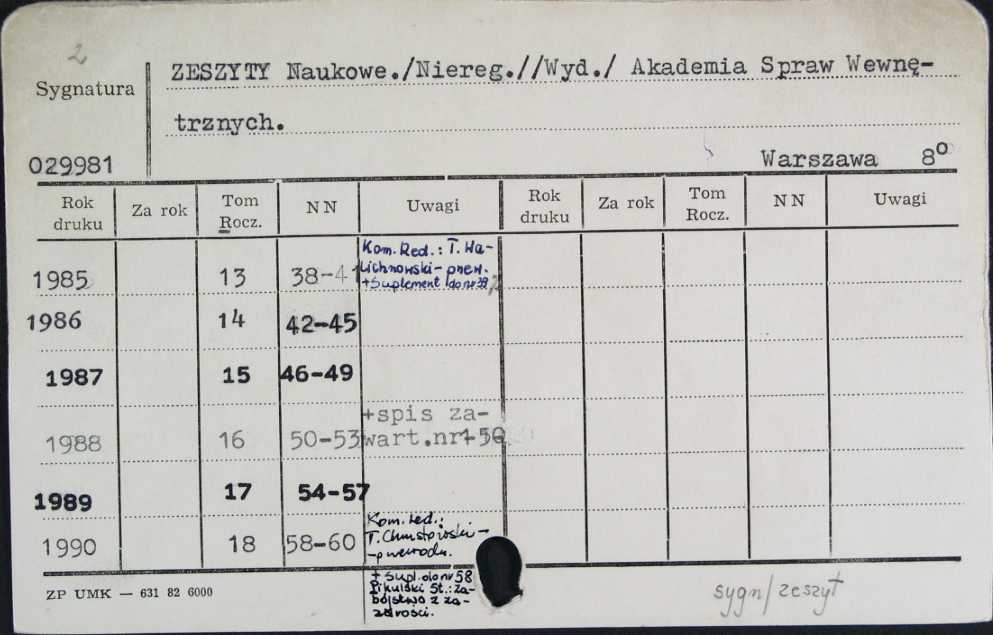 2
ZESZYTY Naukowe./Niereg.//Wyd./ Akademia Spraw Wewnę-
Sygnatura
trznych.
029981
Warszawa 8º
Rok druku Za rok Tom Rocz. NN Uwagi Rok druku Za rok Tom Rocz. NN Uwagi
Kom. Red.: T. Wa-
lichnowski - przew.
1985 13 38-41 + Suplement do nr 39
1986 14 42-45
1987 15 46-49
+spis za-
1988 16 50-53 wart.nr 1-50
1989 17 54-57
Kom. red.:
1990 18 58-60 T. Chrustowski -
- przewodn.
+ Supl. do nr 58
Pikulski St.: Za-
bójstwo z za-
zdrości.
ZP UMK — 631 82 6000
sygn/zeszyt